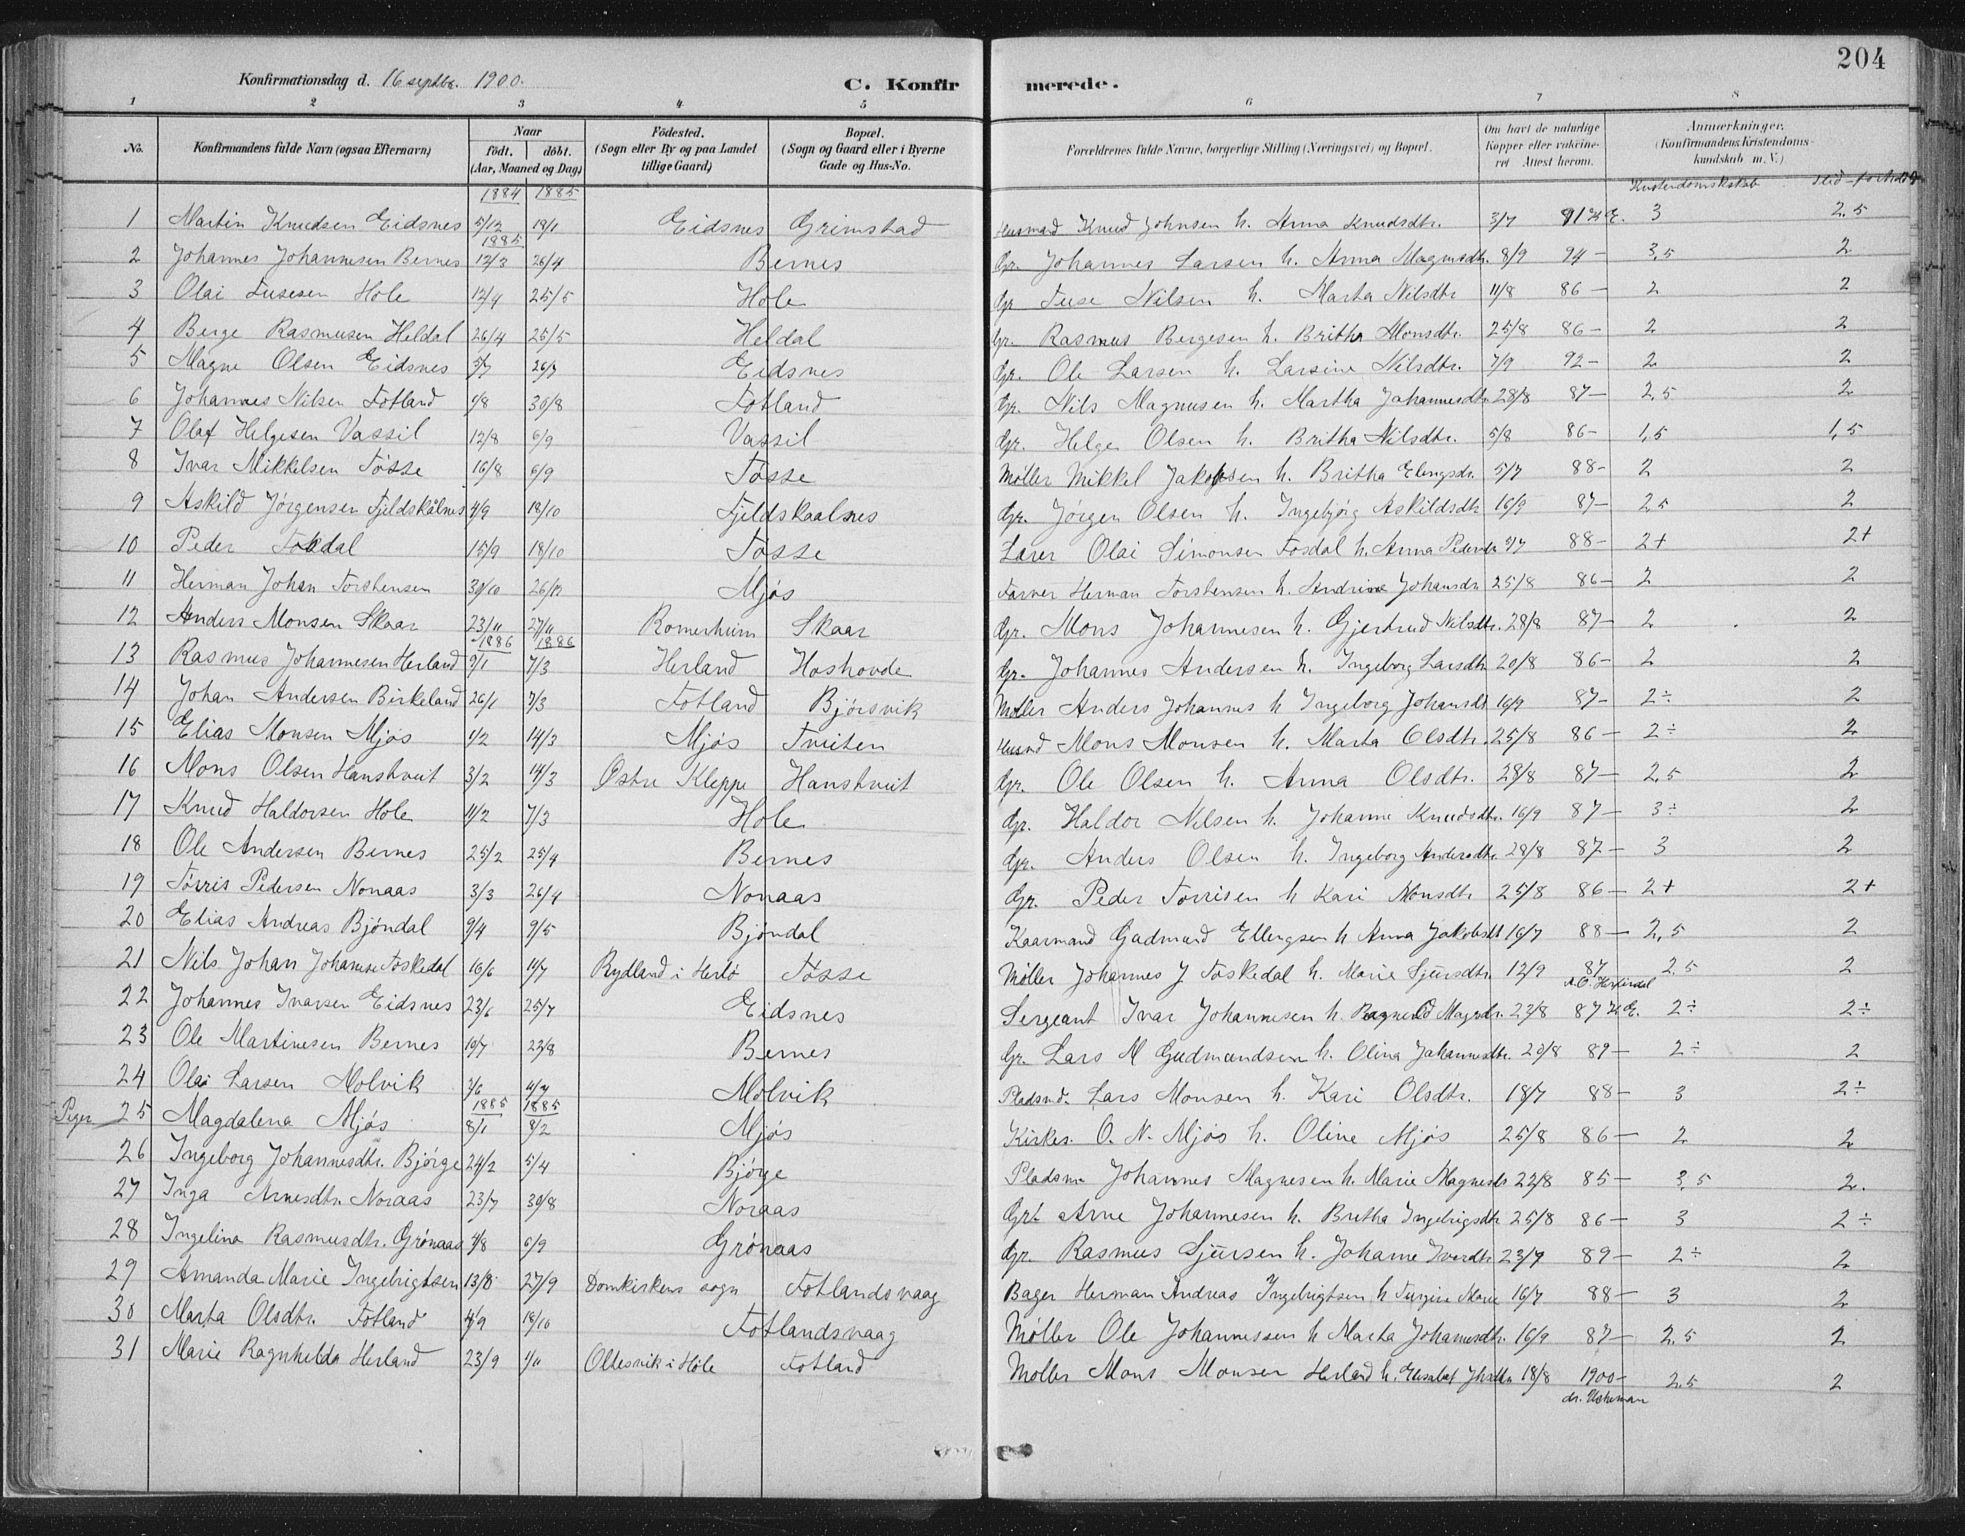 204
Konfirmationsdag d. 16 septbr. 1900.
C. Konfirmerede.
1 2 3 4 5 6 7 8
No. Konfirmandens fulde Navn (ogsaa Efternavn) Naar født, døbt. (Aar, Maaned og Dag) Fødested. (Sogn eller By og paa Landet tillige Gaard) Bopæl. (Sogn og Gaard eller i Byerne Gade og Hus-No. Forældrenes fulde Navne, borgerlige Stilling (Næringsvei) og Bopæl. Om havt de naturlige Kopper eller vakcineret Attest herom. Anmærkninger. (Konfirmandens Kristendomskundskab m. V.)
1884 1885 Kristendomskskab Flid
1 Martin Knudsen Eidsnes 5/12 18/1 Eidsnes Grimstad Husmand Knud Johnsen h. Anna Knudsdtr. 3/7 91 3 2.5
1885
2 Johannes Johannesen Bernes 12/3 26/4 Bernes Gr. Johannes Larsen h. Anna Magnusdtr. 8/9 94 – 3,5 2
3 Olai Tusesen Hole 12/4 25/5 Hole Gr Tuse Nilsen h. Marta Nilsdtr 11/8 86 – 2 2
4 Berge Rasmusen Heldal 26/4 25/5 Heldal Gr. Rasmus Bergesen h. Britha Monsdtr. 25/8 86 – 2 2
5 Magne Olsen Eidsnes 5/7 26/7 Eidsnes Gr. Ole Larsen h. Larsine Nilsdtr. 7/9 92 – 2 2
6 Johannes Nilsen Fotland 4/8 30/8 Fotland Gr. Nils Magnusen h. Martha Johannesdtr 28/8 87 – 2,5 2
7 Olaf Helgesen Vassil 12/8 6/9 Vassil Gr. Helge Olsen h. Britha Nilsdtr. 5/8 86 – 1,5 1,5
8 Ivar Mikkelsen Fosse 16/8 6/9 Fosse Møller Mikkel Jakobsen h. Britha Elingsdr. 5/7 88 – 2 2
9 Askild Jørgensen Fjeldskålnes 4/9 18/10 Fjeldskaalnes Gr. Jørgen Olsen h. Ingebjørg Askildsdtr 16/9 87 – 2,5 2
10 Peder Fosdal 15/9 18/10 Fosse Lærer Olai Simonsen Fosdal h. Anna 88 – 2+ 2+
11 Herman Johan Torstensen 30/10 26/12 Mjøs Farver Herman Torstensen h. Andrine Johansdr 25/8 86 – 2 2
12 Anders Monsen Skaar 23/11 27/11 Romerheim Skaar Gr. Mons Johannesen h. Gjertrud Nilsdtr. 28/8 87 – 2 2
1886 1886
13 Rasmus Johannesen Herland 9/1 7/3 Herland Hoshovde Gr. Johannes Andersen h. Ingeborg Larsdtr 20/8 86 – 2 2
14 Johan Andersen Birkeland 26/1 7/3 Fotland Bjørsvik Møller Anders Johannes h Ingeborg Johansdt 16/9 87 – 2 ÷ 2
15 Elias Monsen Mjøs 1/2 14/3 Mjøs Tveiten Husmd Mons Monsen h. Marta Olsdtr. 25/8 86 – 2 ÷ 2
16 Mons Olsen Hanstveit 3/2 14/3 Østre Kleppe Hanstveit Gr. Ole Olsen h. Anna Olsdtr. 28/8 87 – 2,5 2
17 Knud Haldorsen Hole 11/2 7/3 Hole Gr. Haldor Nilsen h. Johanne Knudsdtr. 16/9 87 – 3 ÷ 2
18 Ole Andersen Bernes 25/2 25/4 Bernes Gr. Anders Olsen h. Ingeborg Andersdtr 28/8 87 – 3 2
19 Torris Pedersen Nonaas 3/3 26/4 Nonaas Gr. Peder Torrisen h Kari Monsdtr 25/8 86 – 2+ 2+
20 Elias Andreas Bjøndal 9/4 9/5 Bjøndal Kaarmand Gudmund Ellingsen h Anna Jakobsdt 16/7 88 – 2,5 2
21 Nils Johan Johannesen Foskedal 16/6 11/7 Rydland i Herlø Fosse Møller Johannes J Foskedal h. Marie Sjursdtr. 12/9 87 2,5 2
22 Johannes Ivarsen Eidsnes 23/6 25/7 Eidsnes Sergeant Ivar Johannesen h. Ragnild Magndr. 23/8 87 2 ÷ 2 ÷
23 Ole Martinesen Bernes 10/7 22/8 Bernes Gr. Lars M Gudmundsen h. Olina Johannesdtr. 23/8 89 – 2 ÷ 2
24 Olai Larsen Molvik Molvik Pladsmd. Lars Monsen h. Kari Olsdtr. 18/7 88 – 3 2 ÷
Piger 1885 1885
25 Magdalena Mjøs 8/1 8/2 Mjøs Kirkes. O. N. Mjøs h. Oline Mjøs 25/8 86 – 2 2
26 Ingeborg Johannesdtr. Bjørge 24/2 5/4 Bjørge Pladsm Johannes Magnesen h. Marie Magnesdt 22/8 85 – 3,5 2.
27 Inga Arnesdtr. Noraas 23/7 30/8 Noraas Gr. Arne Johannesen h. Britha Ingebrigsdtr 25/8 86 – 3 2 ÷
28 Ingelina Rasmusdtr. Grønaas 4/8 6/9 Grønaas Gr. Rasmus Sjursen h. Johanne Iversdtr 23/7 89 – 2 ÷ 2
29 Amanda Marie Ingebrigtsen 13/8 27/9 Domkirkens sogn Fotlandsvaag Bager Herman Andreas Ingebrigtsen h Marie 16/7 88 – 3 2
30 Marta Olsdtr. Fotland 4/9 18/10 Fotlandsvaag Møller Ole Johannessen h Marta Johannesdtr. 16/9 87 – 2,5 2
31 Marie Ragnhelda Herland 23/9 1/11 Ollesvik i Hole Fotland Møller Mons Monsen Herland h. Elisabet 18/8 1900 – 2,5 2